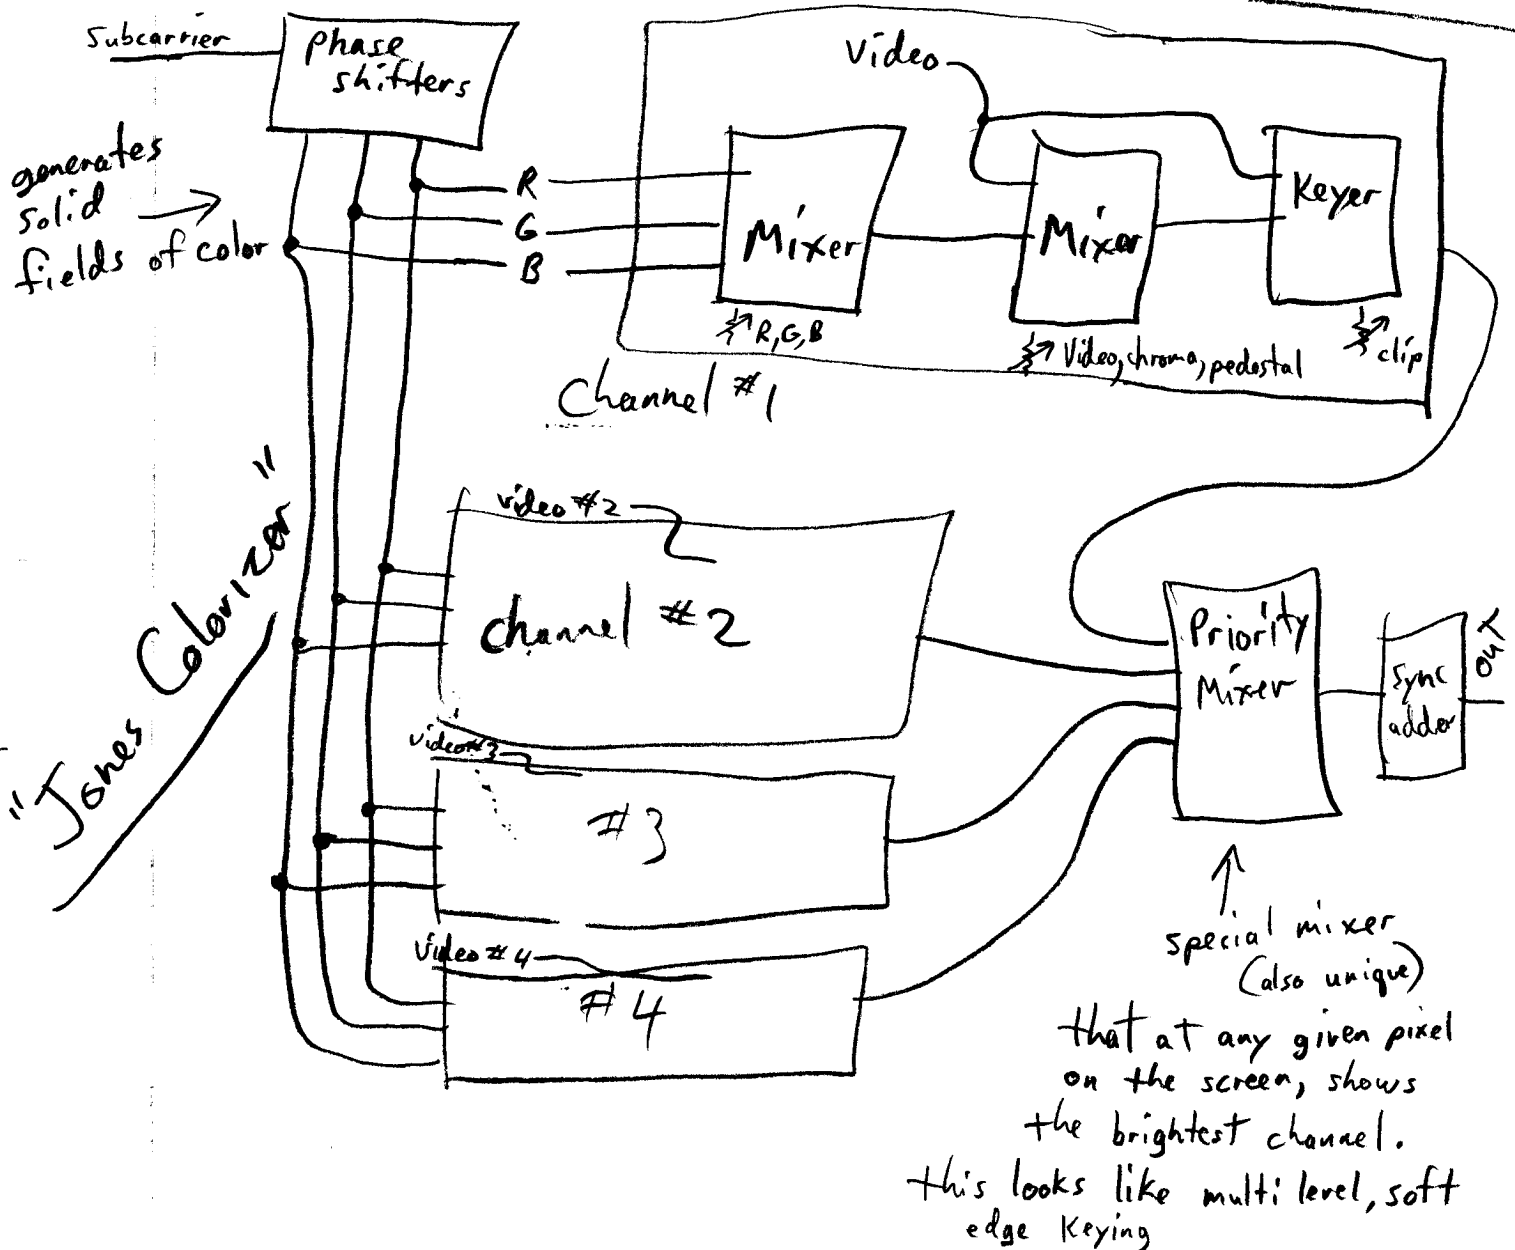 Subcarrier
phase
shifters
generates
solid
fields of color
R
G
B
Video
Mixer
R, G, B
Mixer
Video, chroma, pedestal
Keyer
clip
Channel #1
"Jones Colorizer"
video #2
channel #2
video #3
#3
video #4
#4
Priority
Mixer
sync
adder
out
special mixer
(also unique)
that at any given pixel
on the screen, shows
the brightest channel.
this looks like multi level, soft
edge keying